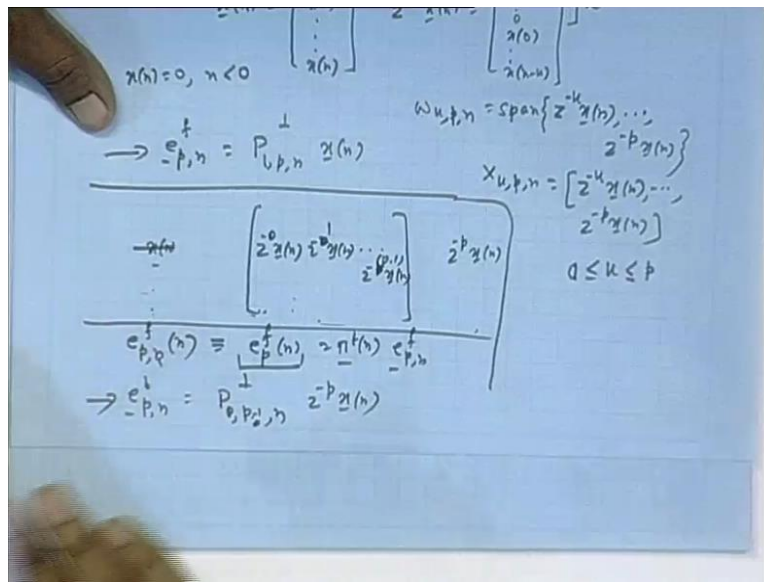 x(n)
0
x(0)
x(n-k)
x(n)=0, n<0
W_{k,p,n} = span{z^{-k} x(n), ...,
z^{-p} x(n)}
→ e^f_{p,n} = P^⊥_{1,p,n} x(n)
X_{k,p,n} = [z^{-k} x(n), ...,
z^{-p} x(n)]
z^{-0} x(n) z^{-1} x(n) ... z^{-(p-1)} x(n) z^{-p} x(n)
0 ≤ k ≤ p
e^f_{p,n}(n) ≡ e^f_p(n) = π^t(n) e^f_{p,n}
→ e^b_{p,n} = P^⊥_{0,p-1,n} z^{-p} x(n)